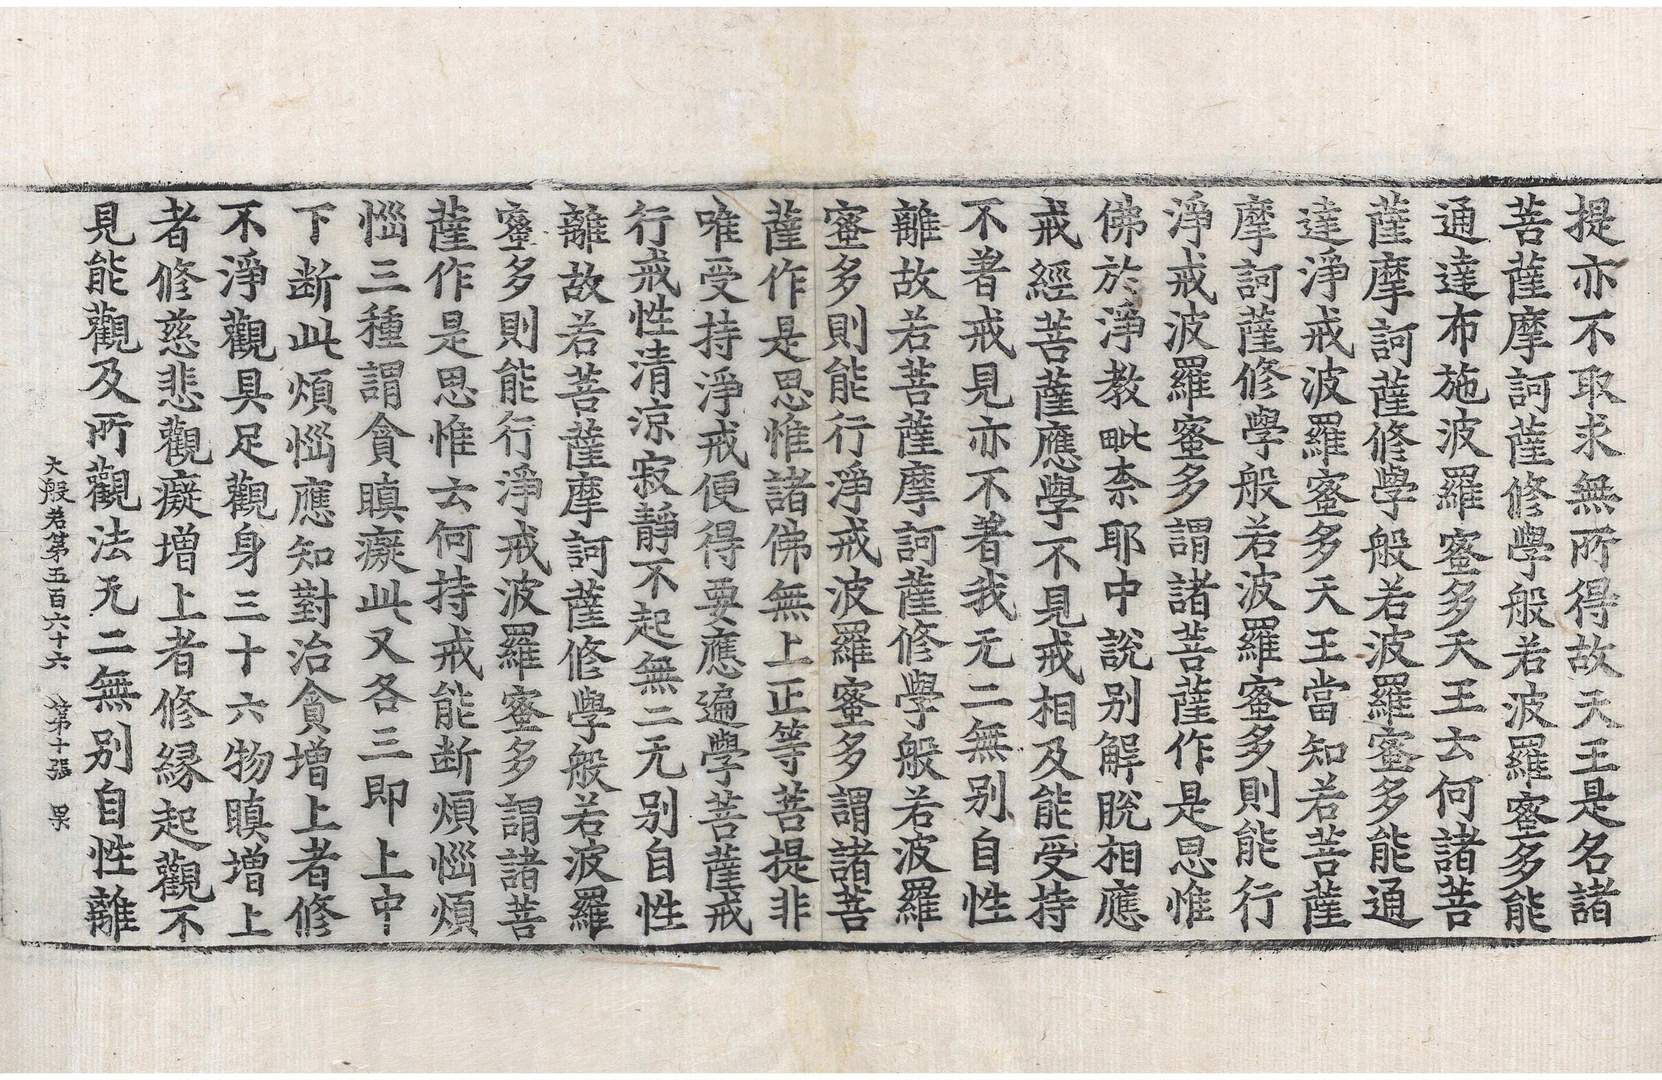 提亦不取求無所得故天王是名諸
菩薩摩訶薩修學般若波羅蜜多能
通達布施波羅蜜多天王云何諸菩
薩摩訶薩修學般若波羅蜜多能通
達淨戒波羅蜜多天王當知若菩薩
摩訶薩修學般若波羅蜜多則能行
淨戒波羅蜜多謂諸菩薩作是思惟
佛於淨教毗柰耶中說別解脫相應
戒經菩薩應學不見戒相及能受持
不著戒見亦不著我无二無別自性
離故若菩薩摩訶薩修學般若波羅
蜜多則能行淨戒波羅蜜多謂諸菩
薩作是思惟諸佛無上正等菩提非
唯受持淨戒便得要應遍學菩薩戒
行戒性清涼寂靜不起無二无別自性
離故若菩薩摩訶薩修學般若波羅
蜜多則能行淨戒波羅蜜多謂諸菩
薩作是思惟云何持戒能断煩惱煩
惱三種謂貪瞋癡此又各三即上中
下断此煩惱應知對治貪增上者修
不淨觀具足觀身三十六物瞋增上
者修慈悲觀癡增上者修緣起觀不
見能觀及所觀法无二無別自性離
大般若第五百六十六 第十張 杲